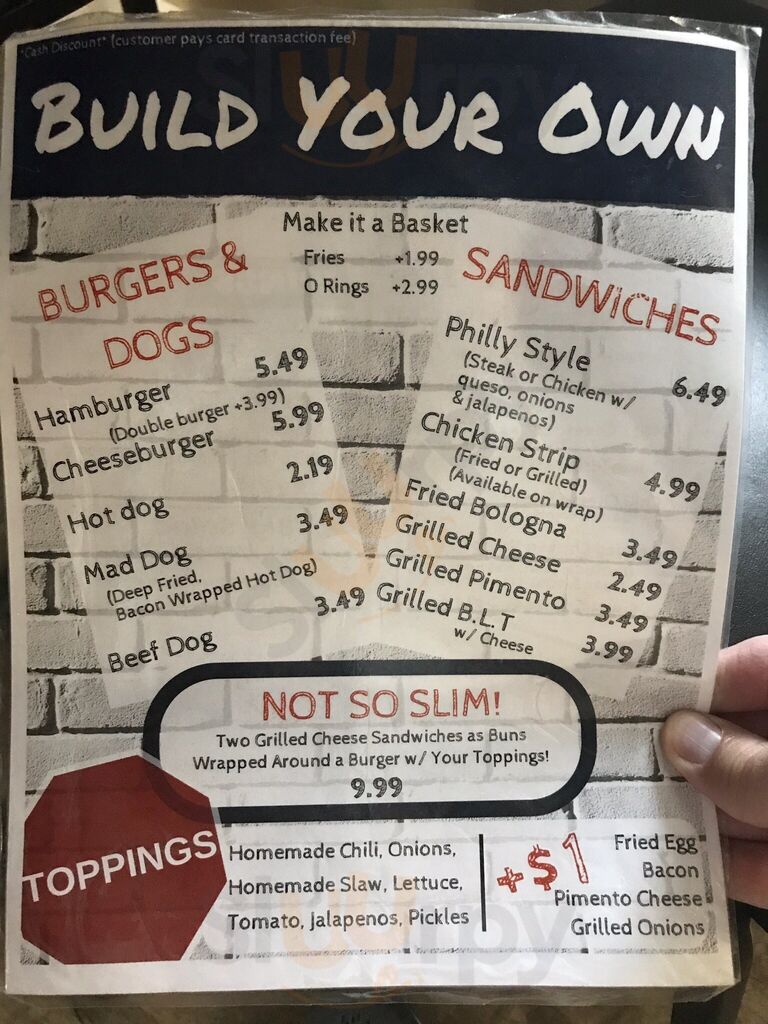 *Cash Discount* (customer pays card transaction fee)
BUILD YOUR OWN
Make it a Basket
Fries +1.99
O Rings +2.99
BURGERS &
DOGS
Hamburger 5.49
(Double burger +3.99)
Cheeseburger 5.99
Hot dog 2.19
Mad Dog 3.49
(Deep Fried,
Bacon Wrapped Hot Dog)
Beef Dog 3.49
SANDWiCHES
Philly Style 6.49
(Steak or Chicken w/
queso, onions
& jalapenos)
Chicken Strip 4.99
(Fried or Grilled)
(Available on wrap)
Fried Bologna 3.49
Grilled Cheese 2.49
Grilled Pimento 3.49
Grilled B.L.T 3.99
w/ Cheese
NOT SO SLIM!
Two Grilled Cheese Sandwiches as Buns
Wrapped Around a Burger w/ Your Toppings!
9.99
TOPPINGS
Homemade Chili, Onions,
Homemade Slaw, Lettuce,
Tomato, Jalapenos, Pickles
+$1
Fried Egg
Bacon
Pimento Cheese
Grilled Onions
sluurpy
sluurpy
sluurpy